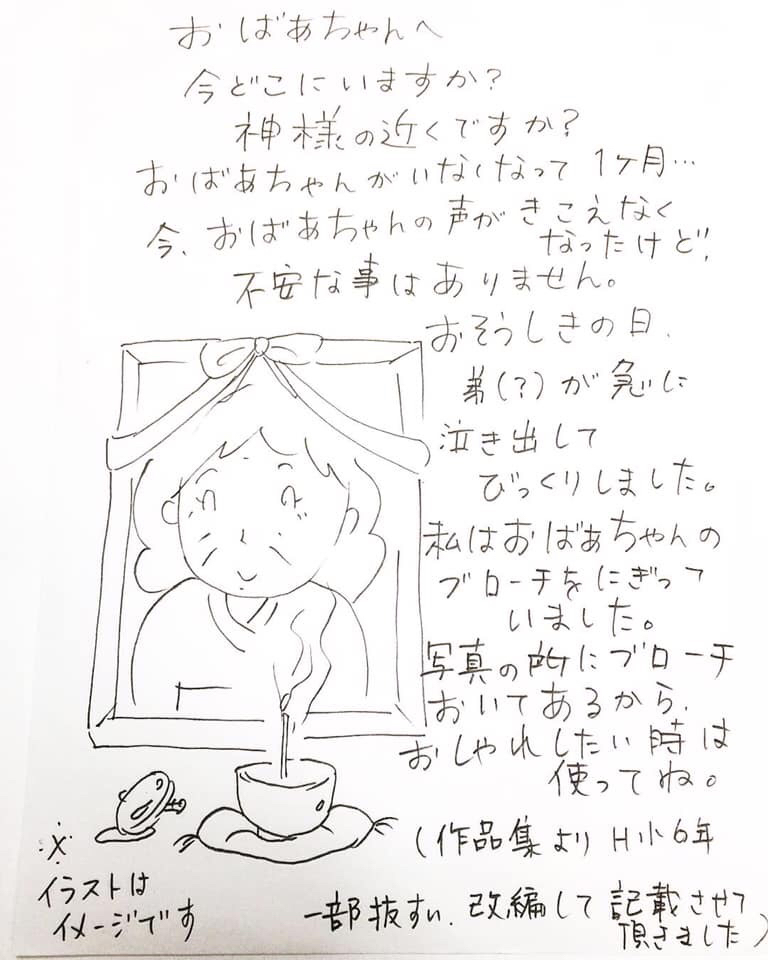 おばあちゃんへ
今どこにいますか？
神様の近くですか？
おばあちゃんがいなくなって1ヶ月…
今、おばあちゃんの声がきこえなく
なったけど、
不安な事はありません。
おそうしきの日、
弟(？)が急に
泣き出して
びっくりしました。
私はおばあちゃんの
ブローチをにぎって
いました。
写真の所にブローチ
おいてあるから、
おしゃれしたい時は
使ってね。
(作品集より H小6年
一部抜すい、改編して記載させて
頂きました)
※
イラストは
イメージです